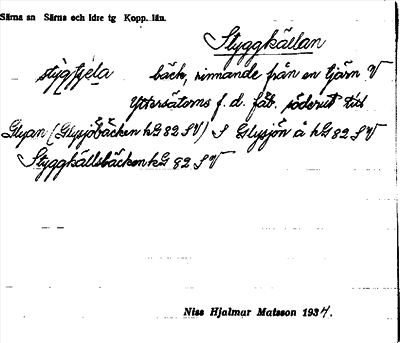 Särna sn Särna och Idre tg Kopp. län.
Styggkällan
stygfjela bäck, rinnande från en tjärn V
Yttersätern f. d. fäb. söderut till
Glyan (Glysjöbäcken hG 82 SV) S Glysjön å hG 82 SV
Styggkällsbäcken hG 82 SV
Nils Hjalmar Matsson 1934.